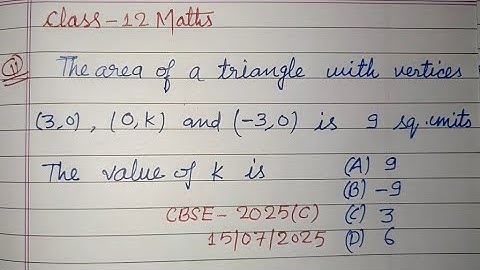 Class-12 Maths
11 The area of a triangle with vertices
(3,0), (0,k) and (-3,0) is 9 sq. units
The value of k is (A) 9
(B) -9
CBSE- 2025(C) (C) 3
15/07/2025 (D) 6